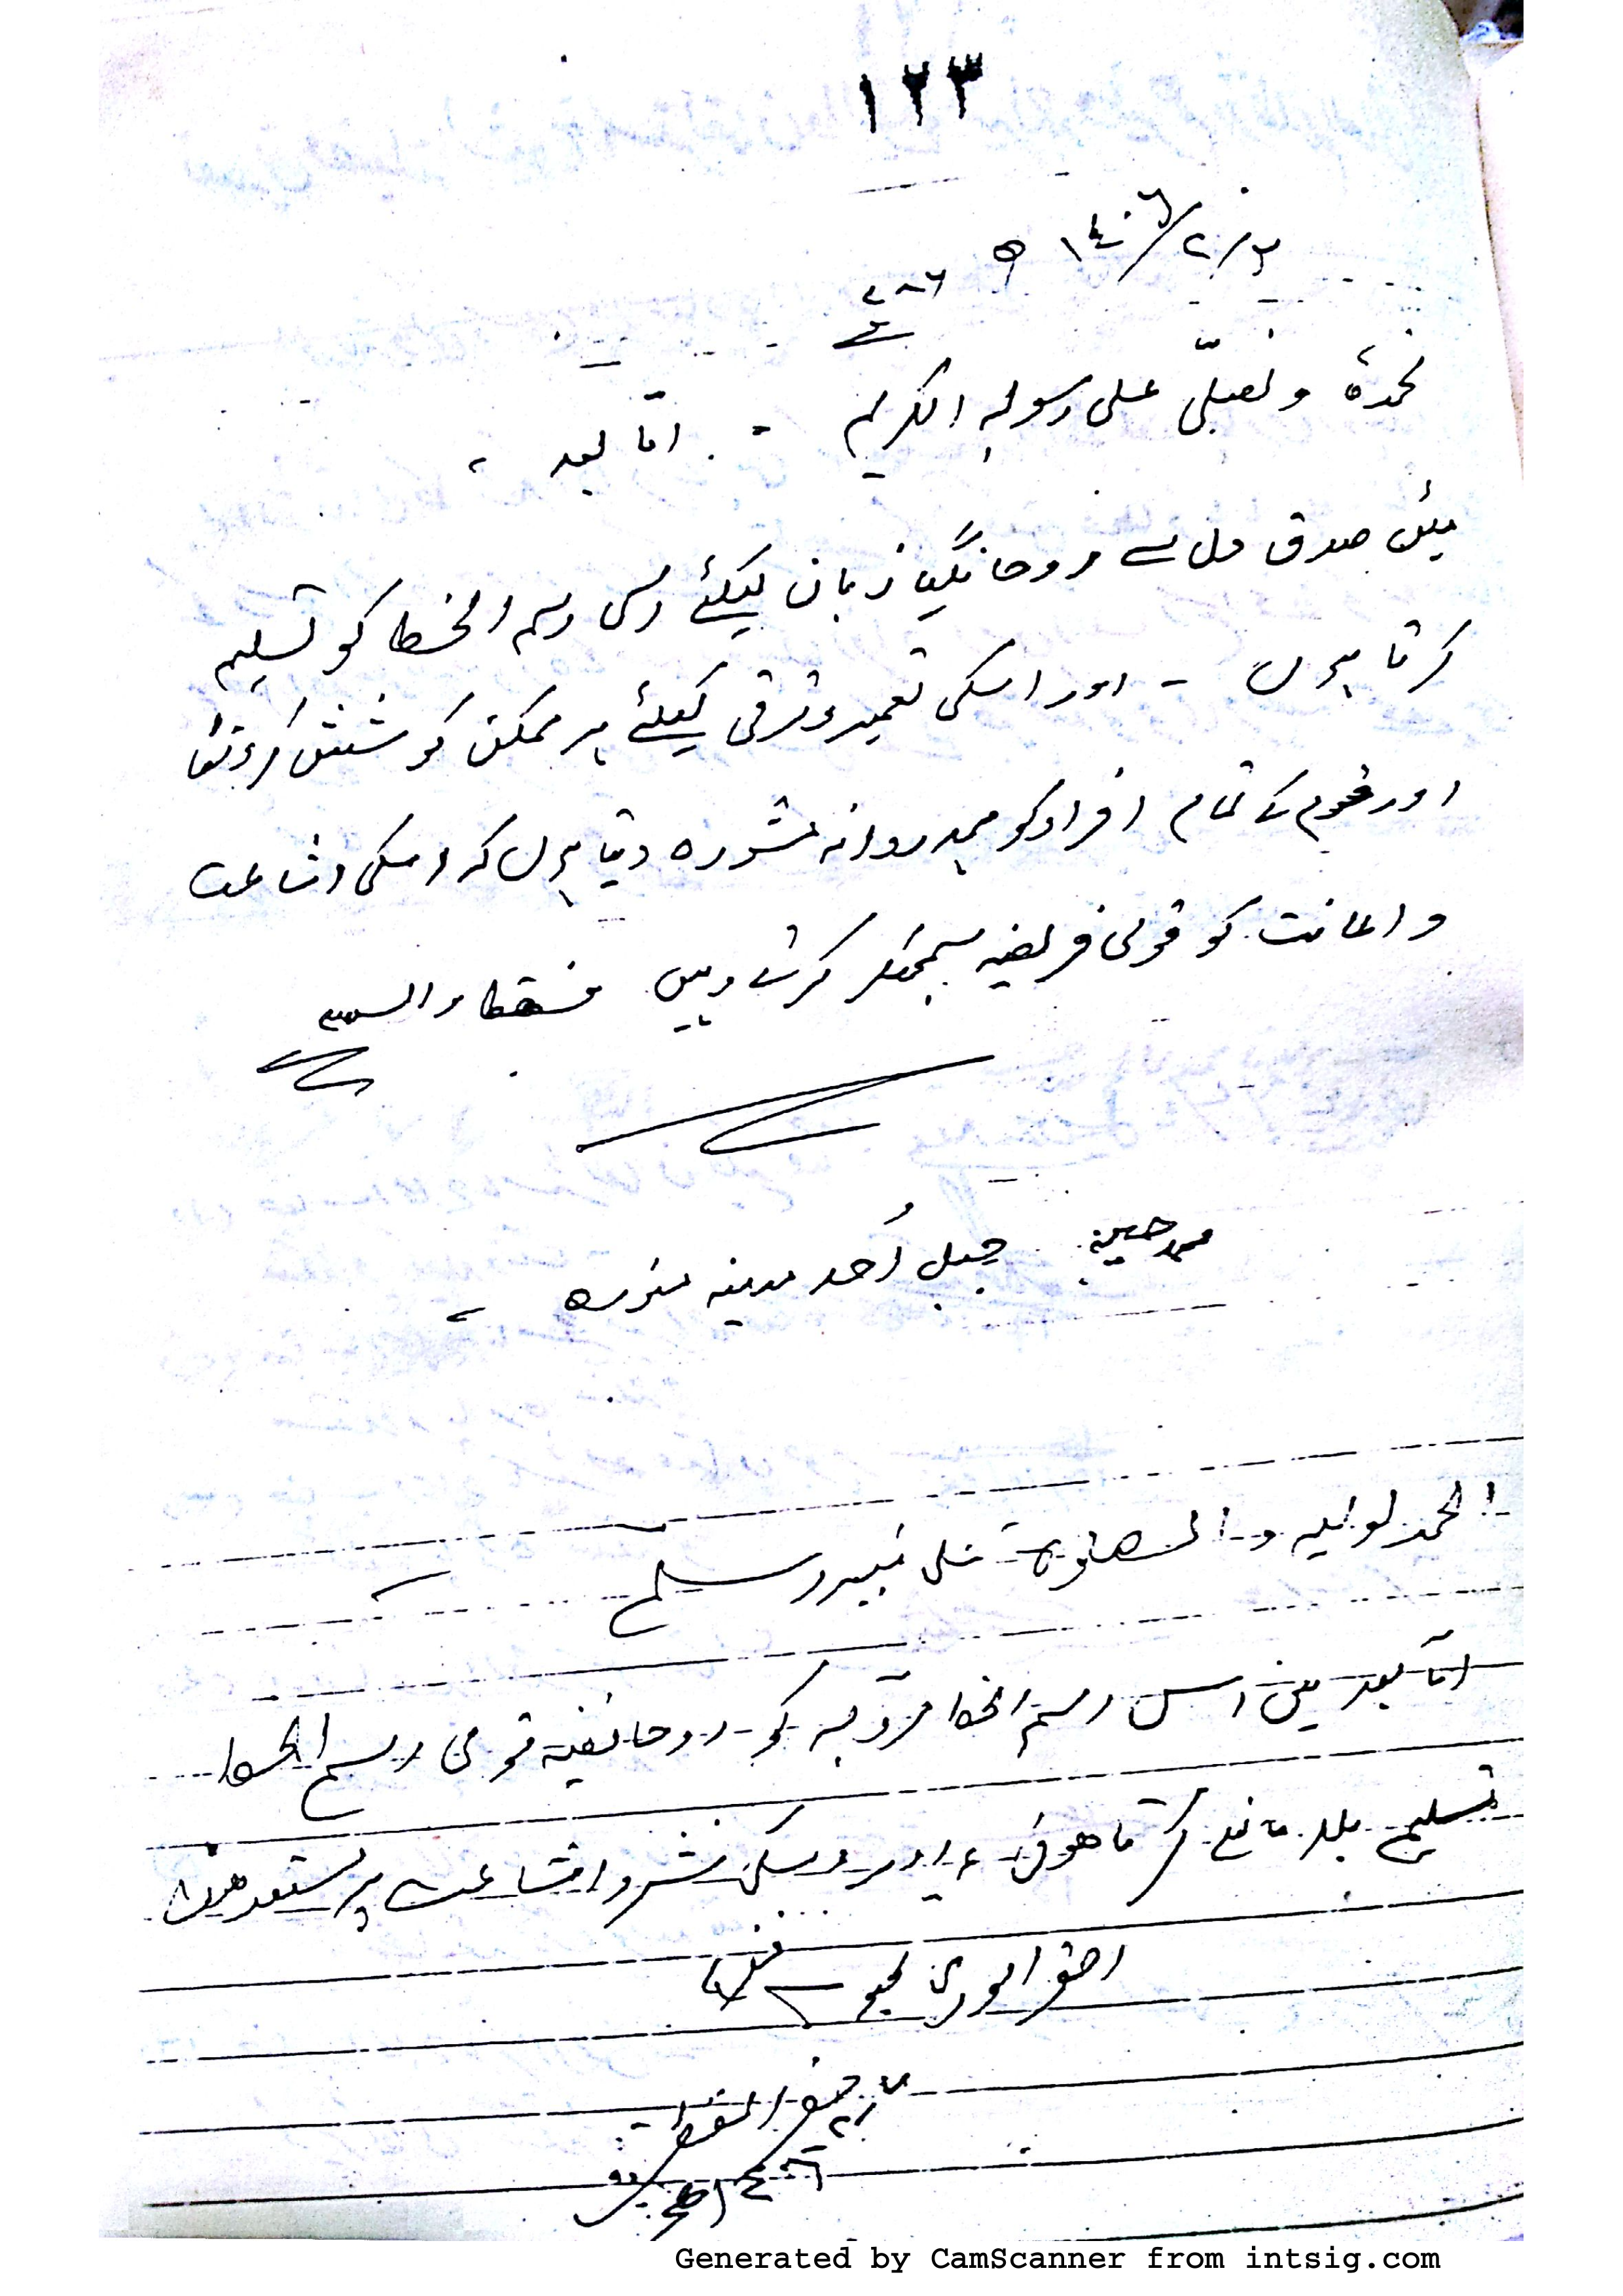 ١٢٣
١٤٠٦/٢/٢٠ ھ
٧٨٦
نحمدہٗ و نصلّی علی رسولہِ الکریم - امّا بعد ،
میں صدق دل سے روحانگیا زبان کیلئے اس رسم الخط کو تسلیم
کرتا ہوں - اور اسکی تعمیر و ترقی کیلئے ہر ممکن کوشش کرونگا
اور قوم کے تمام افراد کو ہمدردانہ مشورہ دیتا ہوں کہ اسکی اشاعت
و اعانت کو قومی فریضہ سمجھکر کرتے رہیں فقط والسلام
محمد حسین جبل اُحد مدینہ منورہ
الحمد لولیہ و الصلوة علی نبیہ وسلم
امّا بعد میں اس رسم الخط قرآنیہ کو روحانغیہ قومی رسم الخط
تسلیم بلا مانع کرتا ہوں ، اور اسکی نشر و اشاعت پر مستعد ہوں
احقر الوری فقط